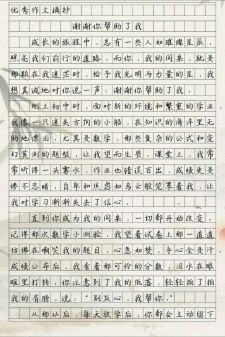 优秀作文摘抄
谢谢你帮助了我
成长的旅程中，总有一些人如璀璨星辰，
照亮我们前行的道路。而你，我的同桌，就是
那颗在我迷茫时，给予我光明与力量的星，我
想真诚地对你说一声：谢谢你帮助了我。
刚上初中时，面对新的环境和繁重的学业，
我像一只迷失方向的小船，在知识的海洋里无
助地漂泊。尤其是数学，那些复杂的公式和变
幻莫测的题型，让我望而生畏。课堂上，我常
常听得一头雾水，作业也错误百出，成绩更是
惨不忍睹，自卑和焦虑如乌云般笼罩着我，让
我对学习渐渐失去了信心。
直到你成为我的同桌，一切都开始改变。
记得那次数学小测验，我望着试卷上那一道道
仿佛在嘲笑我的题目，心急如焚，手心全是汗。
成绩公布后，我看着那可怜的分数，泪水在眼
眶里打转。你注意到了我的低落，轻轻拍了拍
我的肩膀，说：“别灰心，我帮你。”
从那以后，每天放学后，你都会主动留下